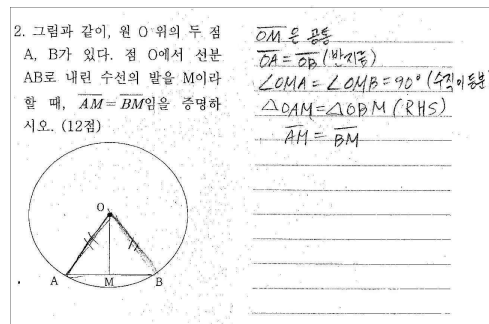 2. 그림과 같이, 원 O 위의 두 점
A, B가 있다. 점 O에서 선분
AB로 내린 수선의 발을 M이라
할 때, AM=BM임을 증명하
시오. (12점)
O
A M B
OM은 공통
OA = OB (반지름)
∠OMA = ∠OMB = 90° (수직이등분
△OAM = △OBM (RHS)
AM = BM